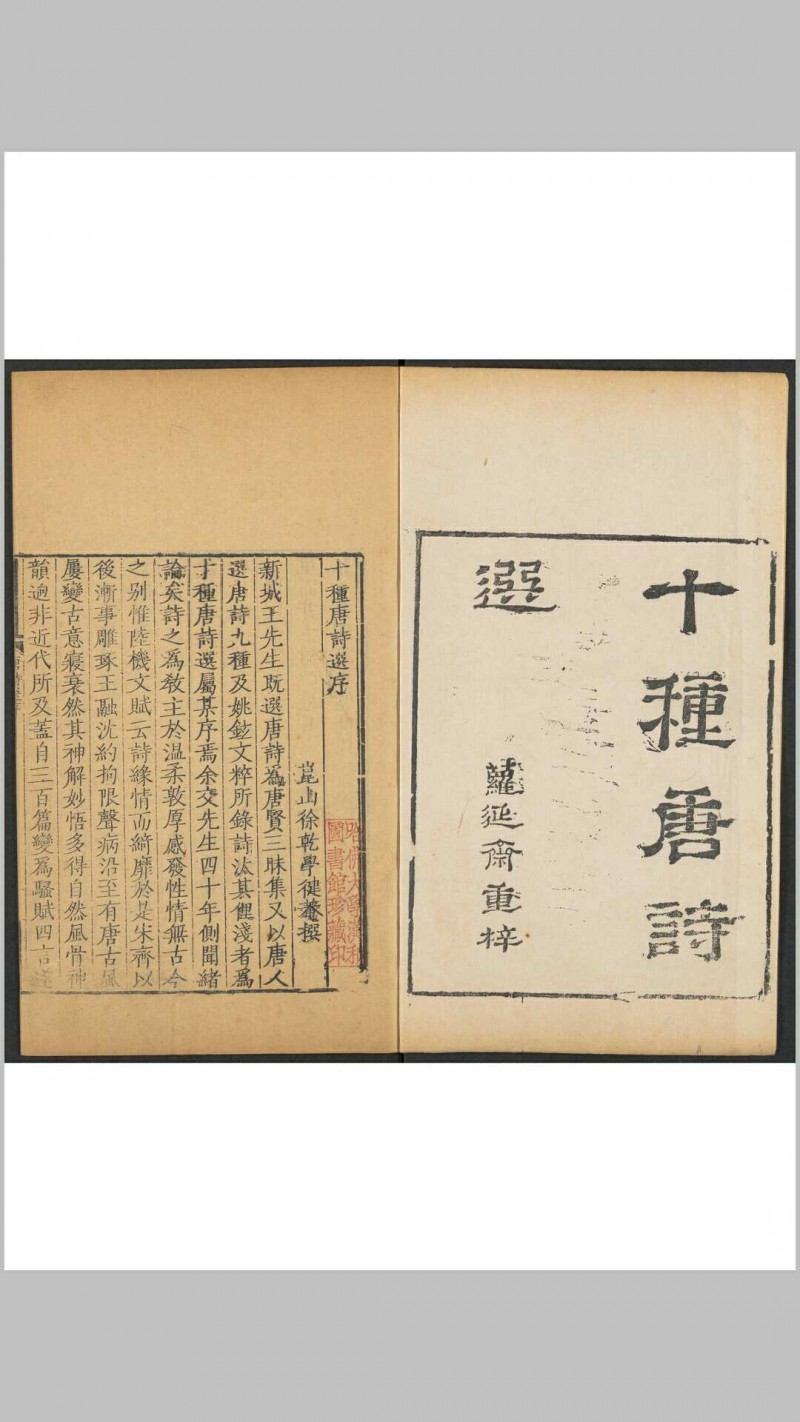 十種唐詩
選
蘿延齋重梓
十種唐詩選序
崑山徐乾學健菴撰
新城王先生既選唐詩為唐賢三昧集又以唐人
選唐詩九種及姚鉉文粹所錄詩汰其俚淺者為
十種唐詩選屬某序焉余交先生四十年側聞緒
論矣詩之為教主於温柔敦厚感發性情無古今
之别惟陸機文賦云詩緣情而綺靡於是宋齊以
後漸事雕琢王融沈約拘限聲病沿至有唐古風
屢變古意寖衰然其神解妙悟多得自然風骨神
韻逈非近代所及蓋自三百篇變爲騷賦四言
哈佛大學漢和
圖書館珍藏印